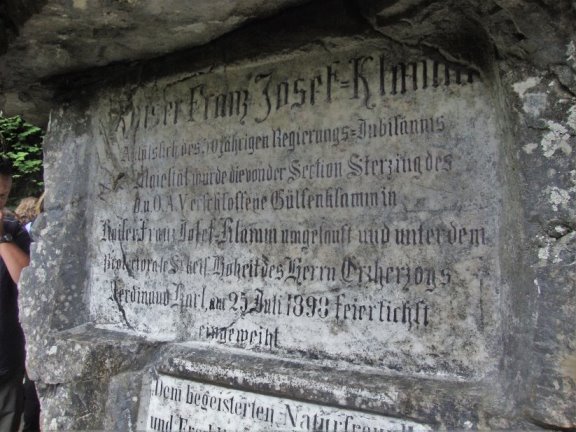 Kaiser Franz Josef=Klamm
Anläslich des 50jährigen Regierungs=Jubiläums
Majestät wurde die von der Section Sterzing des
D.u.O.A.V erschlossene Gilfenklamm in
Kaiser Franz Josef=Klamm umgetauft und unter dem
Protectorate Sr. kais. Hoheit des Herrn Erzherzogs
Ferdinand Karl, am 25 Juli 1898 feierlichst
eingeweiht
Dem begeisterten Naturfreund
und